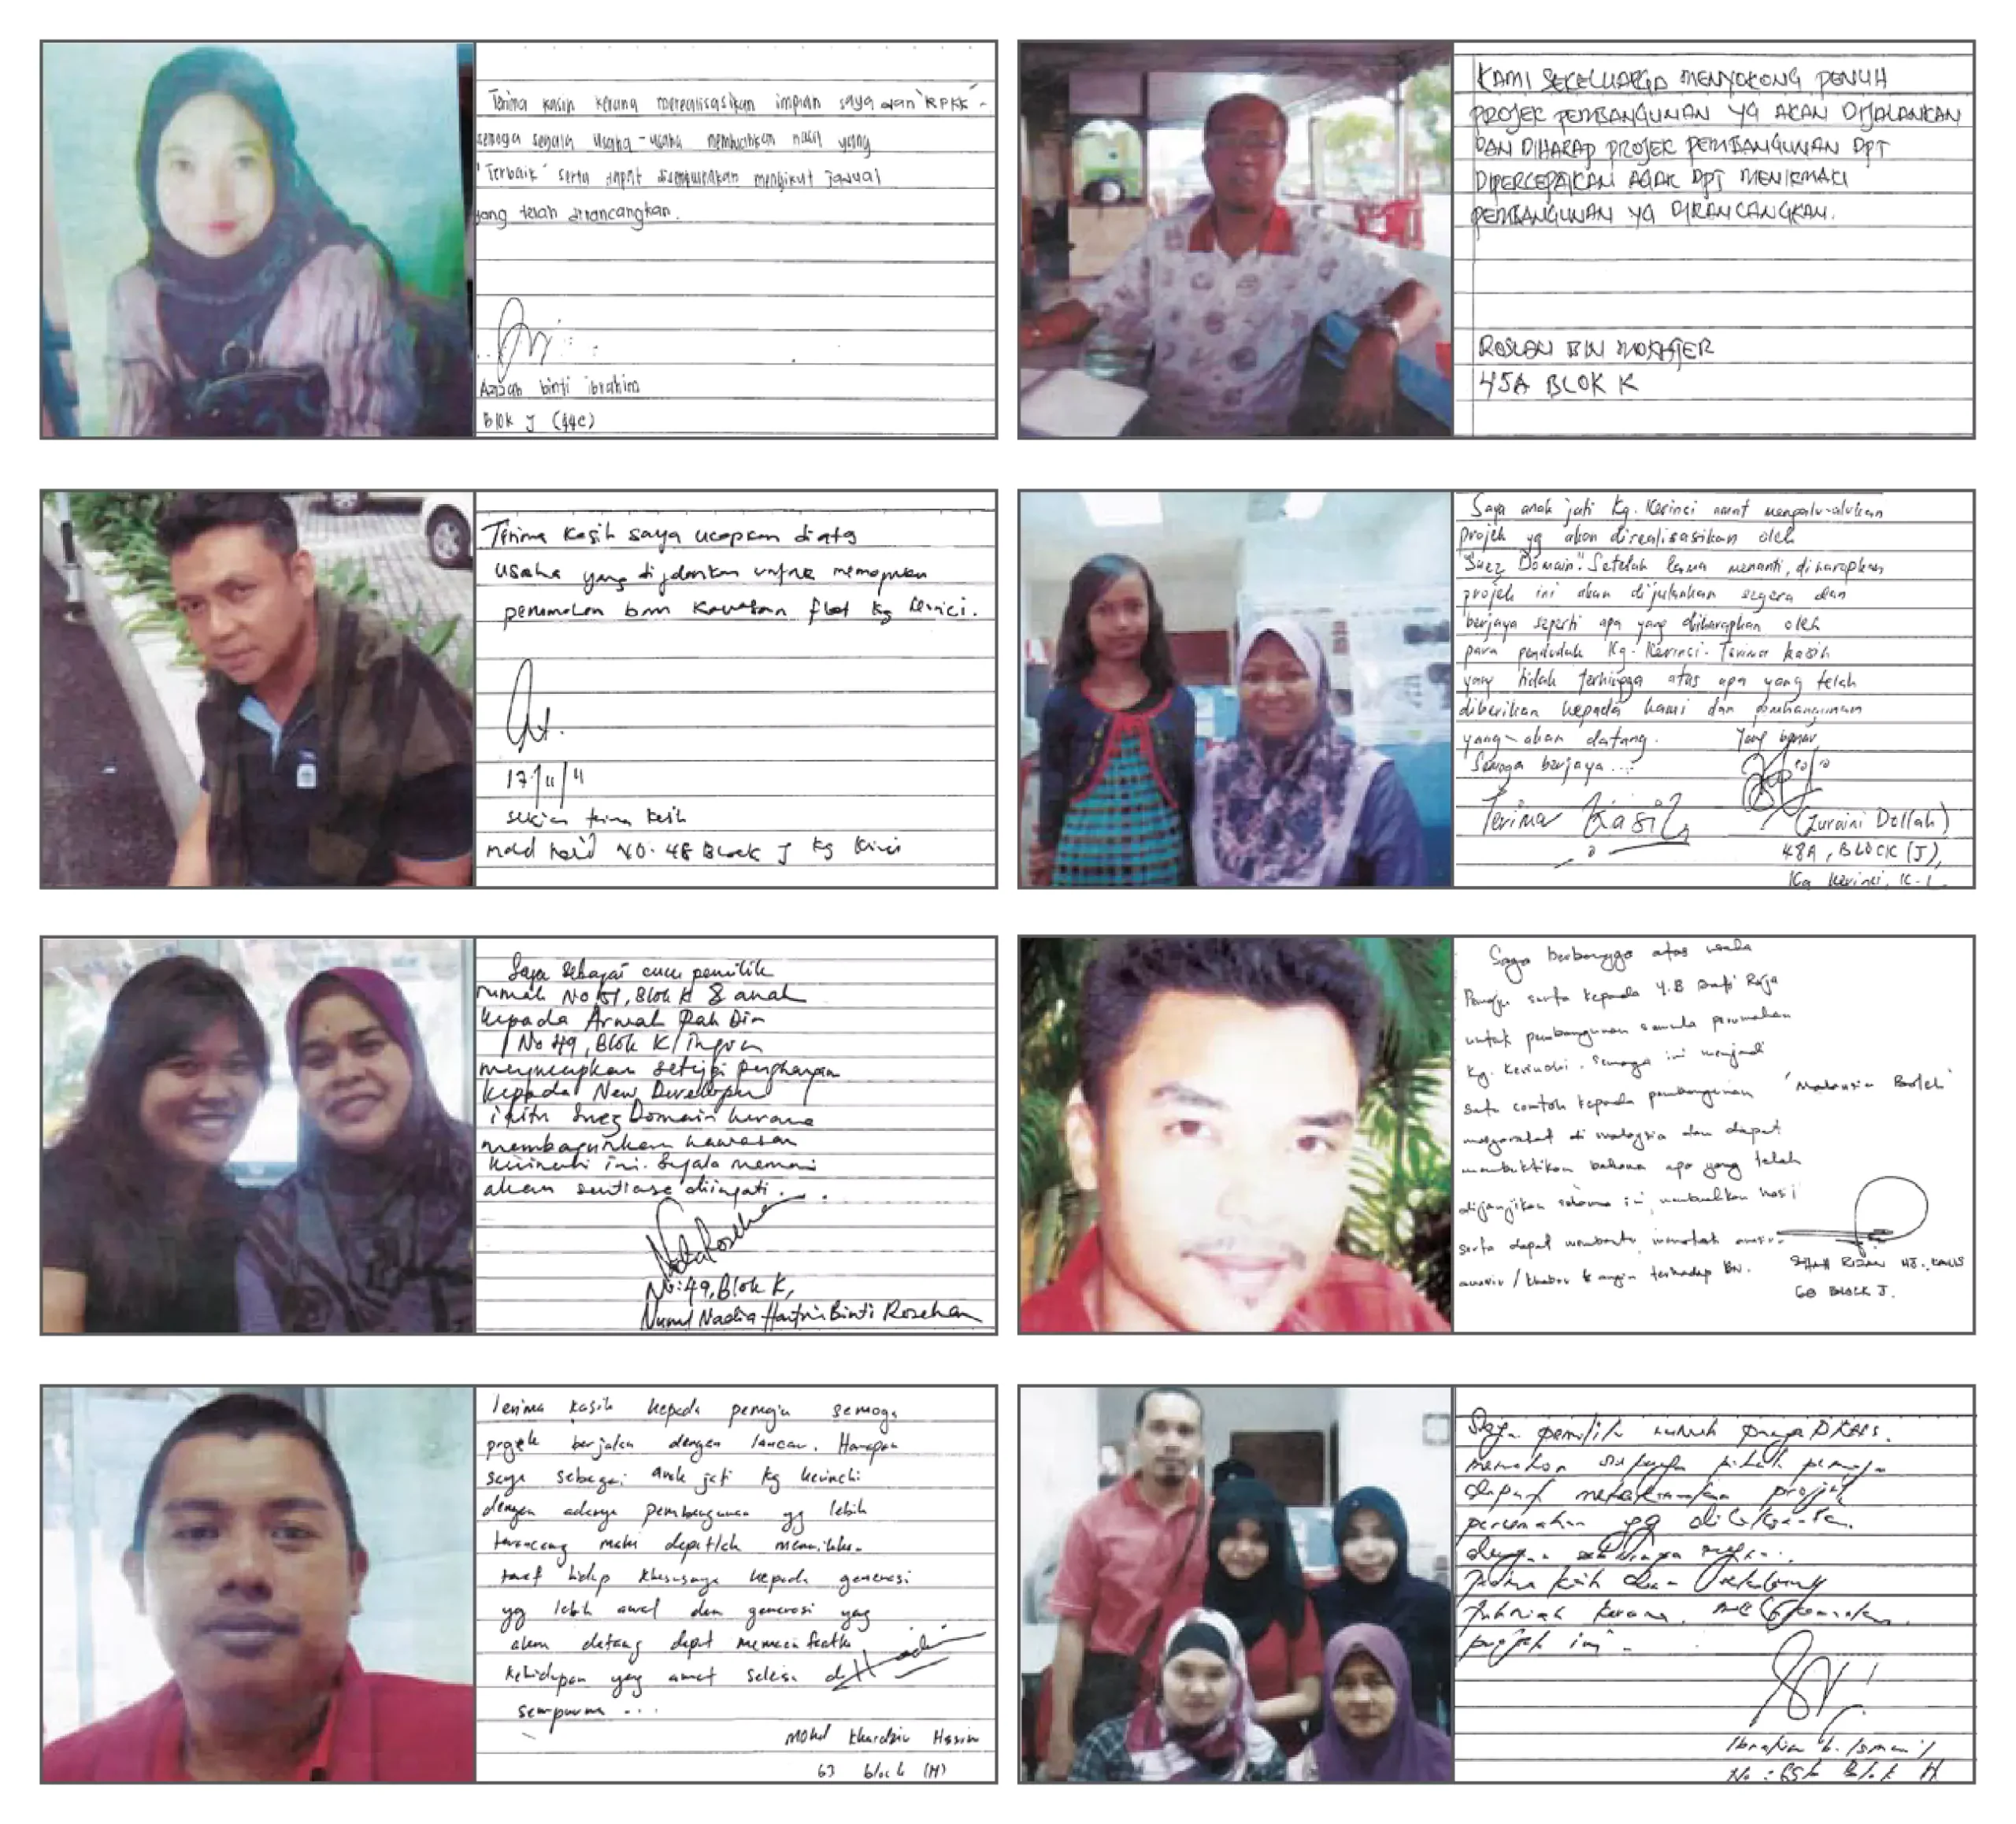 Terima kasih kerana merealisasikan impian saya dan "RPKK" -
semoga segala usaha-usaha membuahkan hasil yang
'Terbaik' serta dapat disempurnakan mengikut jadual
yang telah dirancangkan.
Azizah binti ibrahim
Blok J (44C)
KAMI SEKELUARGA MENYOKONG PENUH
PROJEK PEMBANGUNAN YG AKAN DIJALANKAN
DAN DIHARAP PROJEK PEMBANGUNAN DPT
DIPERCEPATKAN AGAR DPT MENIKMATI
PEMBANGUNAN YG DIRANCANGKAN.
ROSLAN BIN
45A BLOK K
Terima Kasih saya ucapkan diatas
usaha yang dijalankan untuk memajukan
perumahan kawasan flat Kg Kerinci.
17/11/11
sekian terima kasih
Mohd NO. 48 Block J Kg Krinci
Saya anak jati Kg. Kerinci amat mengalu-alukan
projek yg akan direalisasikan oleh
"Suez Domain". Setelah lama menanti, diharapkan
projek ini akan dijalankan segera dan
berjaya seperti apa yang diharapkan oleh
para penduduk Kg. Kerinci. Terima kasih
yang tidak terhingga atas apa yang telah
diberikan kepada kami dan pembangunan
yang akan datang. Yang benar,
Semoga berjaya...
Terima Kasih (Zuraini Dollah)
48A, BLOCK (J),
Kg Kerinci, K-L
Saya sebagai cucu pemilik
rumah No 51, Blok K & anak
kepada Arwah Pah Din
No 49, Blok K, ingin
mengucapkan setinggi penghargaan
kepada New Developer
iaitu Suez Domain kerana
membangunkan kawasan
kerinchi ini. Segala memori
akan sentiasa diingati...
No: 49, Blok K,
Nurul Nadia Hartini Binti Rosehan
Saya berbangga atas usaha
Pemaju serta kepada Y.B Dato' Raja
untuk pembangunan semula perumahan
Kg. Kerinchi. Semoga ini menjadi
satu contoh kepada pembangunan 'Malaysia Boleh'
masyarakat di malaysia dan dapat
membuktikan bahawa apa yang telah
dijanjikan selama ini, membuahkan hasil
serta dapat membantu menolak anasir-
anasir / khabar angin terhadap BN.
SHAH RIZAN HJ.
60 BLOCK J.
Terima kasih kepada pemaju semoga
projek berjalan dengan lancar. Harapan
saya sebagai anak jati kg kerinchi
dengan adanya pembangunan yg lebih
terancang maka dapatlah menaikkan
taraf hidup khususnya kepada generasi
yg lebih awal dan generasi yang
akan datang dapat memanfaatkan
kehidupan yang amat selesa dan
sempurna ...
Mohd Khardzir Hasim
63 block (H)
Saya pemilik rumah
memohon supaya pihak pemaju
dapat melaksanakan projek
perumahan yg
dengan
Terima kasih dan
kerana
projek ini.
Ibrahim b. Ismail
No: 65A Blok H